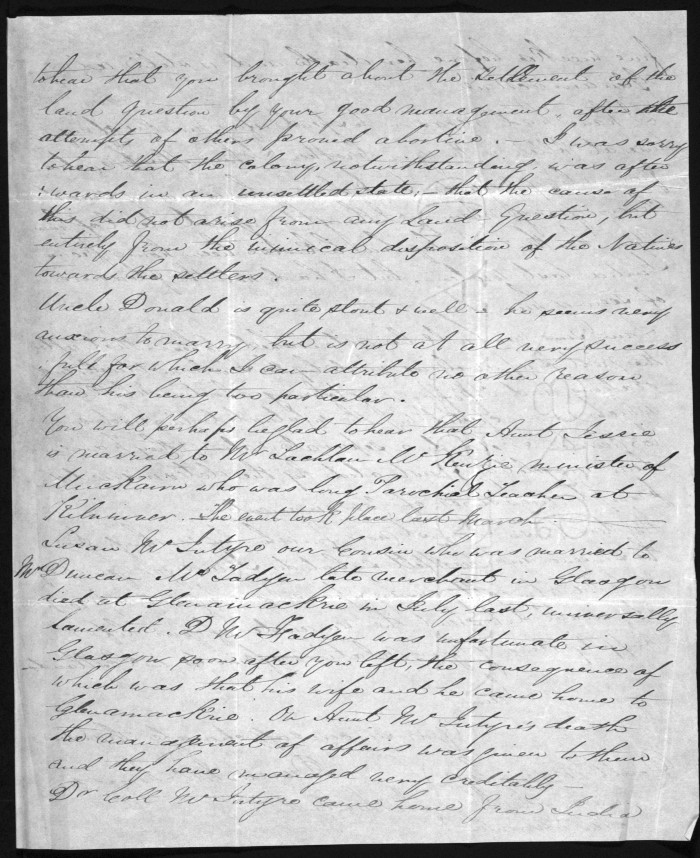 to hear that you brought about the settlement of the
land question by your good management, after the
attempts of others proved abortive. — I was sorry
to hear that the colony, notwithstanding, was after
wards in an unsettled state, — that the cause of
this did not arise from any Land Question, but
entirely from the inimical disposition of the Natives
towards the settlers.
Uncle Donald is quite stout & well — he seems very
anxious to marry, but is not at all very success
full for which I can attribute no other reason
than his being too particular.
You will perhaps be glad to hear that Aunt Jessie
is married to Mr Lachlan McKenzie minister of
Muckairn who was long Parochial Teacher at
Kilninver. The event took place last March.
Susan McIntyre our Cousin who was married to
Mr Duncan McFadyen late merchant in Glasgow
died at Glenamackrie in July last, universally
lamented. D McFadyen was unfortunate in
Glasgow soon after you left, the consequence of
which was that his wife and he came home to
Glenamackrie. On Aunt McIntyre's death
the management of affairs was given to them
and they have managed very creditably —
Dr Coll McIntyre came home from India